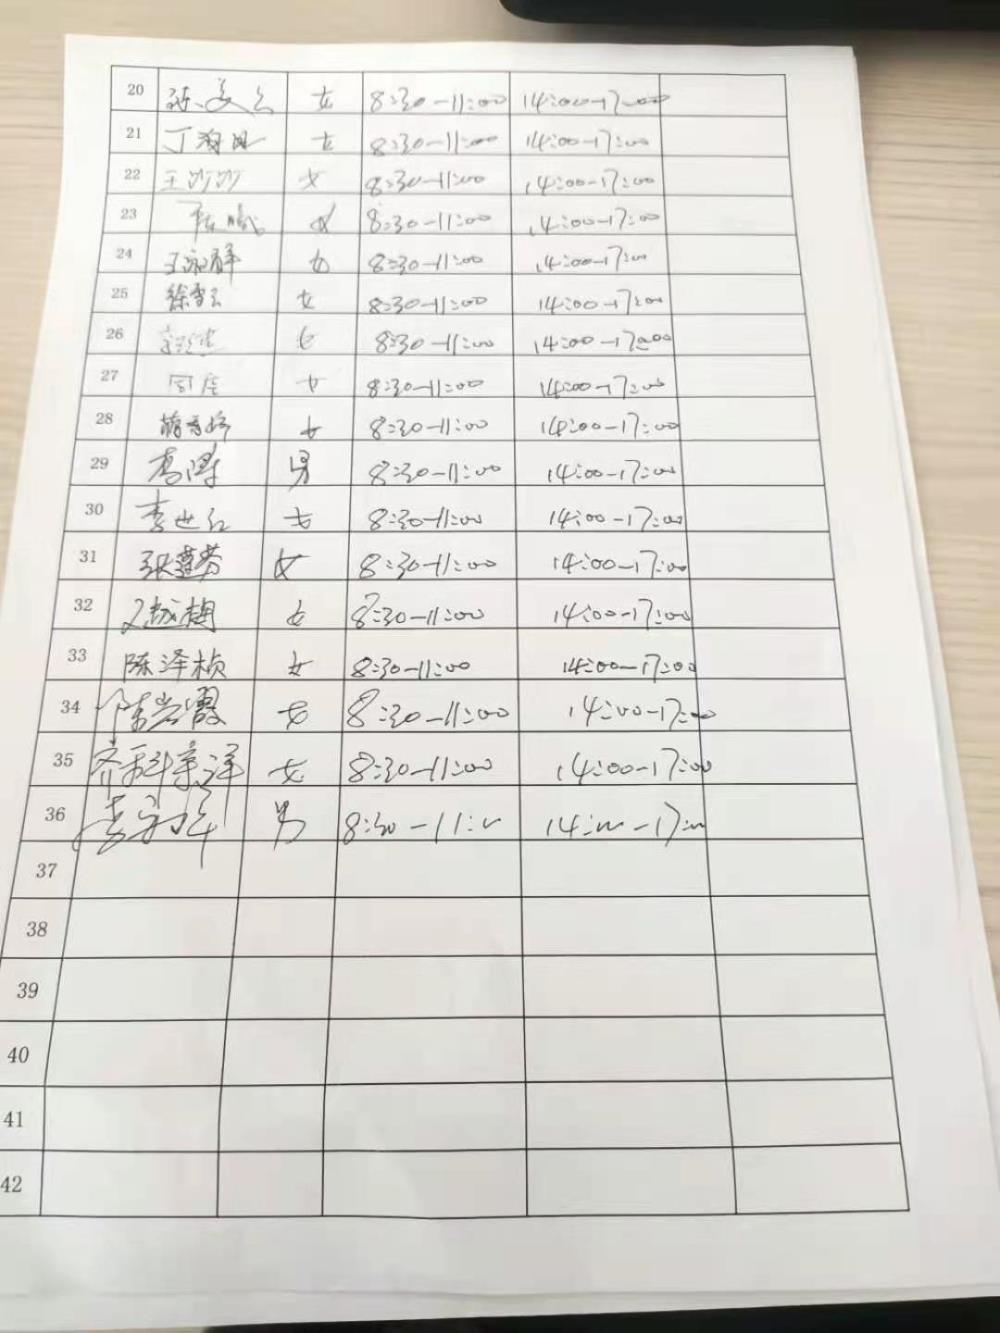 20 女 8:30-11:00 14:00-17:00
21 丁 女 8:30-11:00 14:00-17:00
22 王沙沙 女 8:30-11:00 14:00-17:00
23 女 8:30-11:00 14:00-17:00
24 王 女 8:30-11:00 14:00-17:00
25 徐雪云 女 8:30-11:00 14:00-17:00
26 女 8:30-11:00 14:00-17:00
27 女 8:30-11:00 14:00-17:00
28 女 8:30-11:00 14:00-17:00
29 男 8:30-11:00 14:00-17:00
30 李世红 女 8:30-11:00 14:00-17:00
31 张莲芬 女 8:30-11:00 14:00-17:00
32 女 8:30-11:00 14:00-17:00
33 陈泽桢 女 8:30-11:00 14:00-17:00
34 陈岩霞 女 8:30-11:00 14:00-17:00
35 女 8:30-11:00 14:00-17:00
36 李 男 8:30-11:00 14:00-17:00
37
38
39
40
41
42